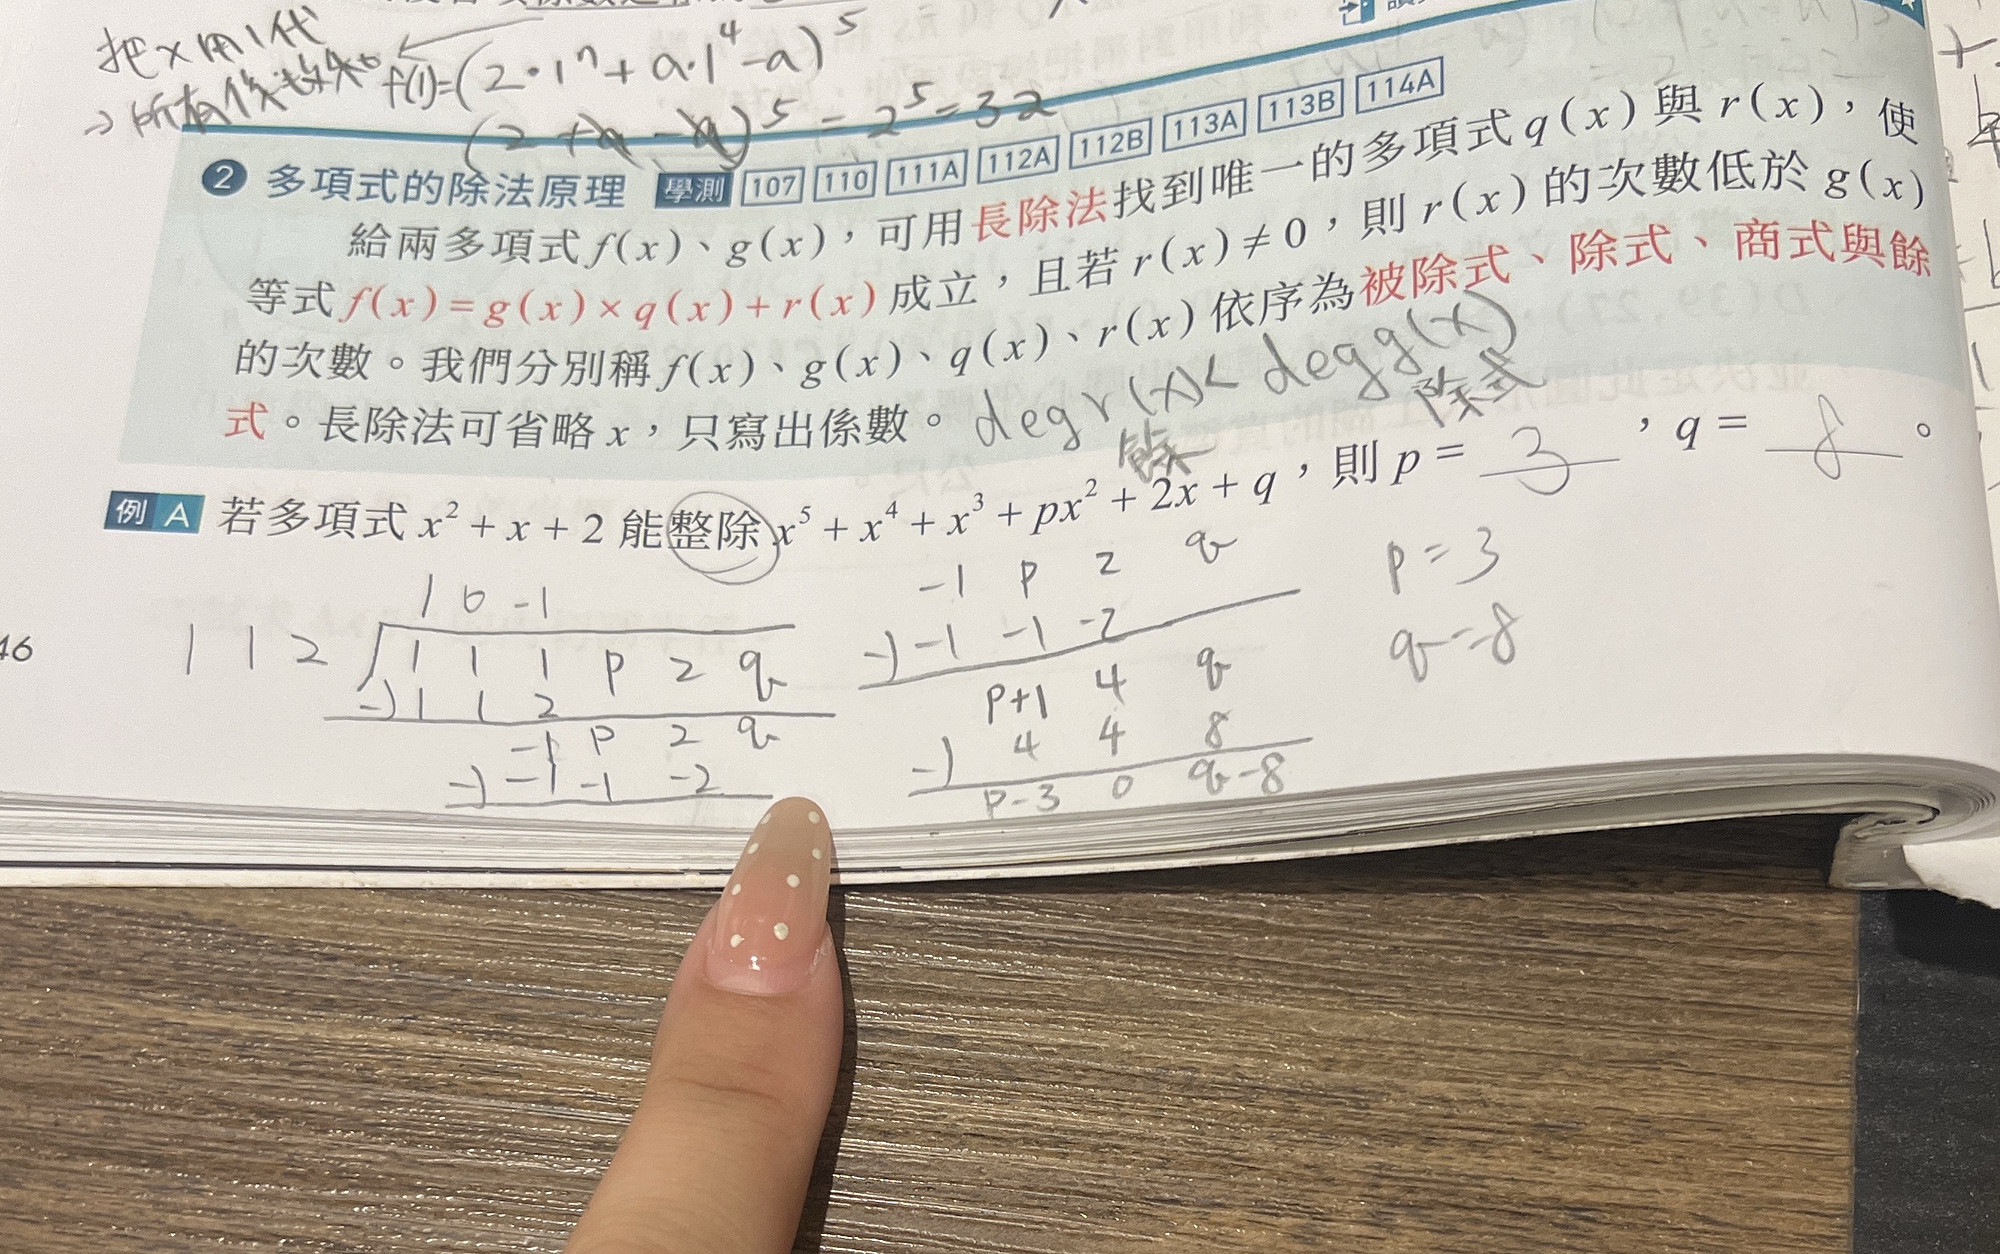 把x用1代
→所有係數和 f(1)=(2·1ⁿ+a·1⁴-a)⁵
(2+a-a)⁵=2⁵=32
❷ 多項式的除法原理 學測 107 110 111A 112A 112B 113A 113B 114A
給兩多項式 f(x)、g(x),可用長除法找到唯一的多項式 q(x) 與 r(x),使
等式 f(x)=g(x)×q(x)+r(x) 成立,且若 r(x)≠0,則 r(x) 的次數低於 g(x)
的次數。我們分別稱 f(x)、g(x)、q(x)、r(x) 依序為被除式、除式、商式與餘
式。長除法可省略 x,只寫出係數。 deg r(x) < deg g(x)
餘 除式
例 A 若多項式 x²+x+2 能整除 x⁵+x⁴+x³+px²+2x+q,則 p= 3 ,q= 8 。
1 0 -1
1 1 2 1 1 1 p 2 q
-) 1 1 2
-1 p 2 q
-) -1 -1 -2
-1 p 2 q
-) -1 -1 -2
p+1 4 q
-) 4 4 8
p-3 0 q-8
p=3
q=8
46